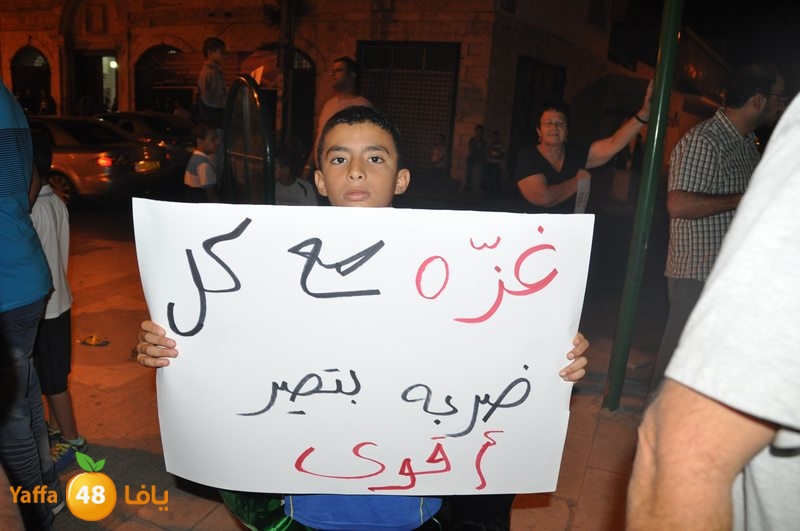 غزّه مع كل
ضربه بتصير
أقوى
Yaffa 48 يافا